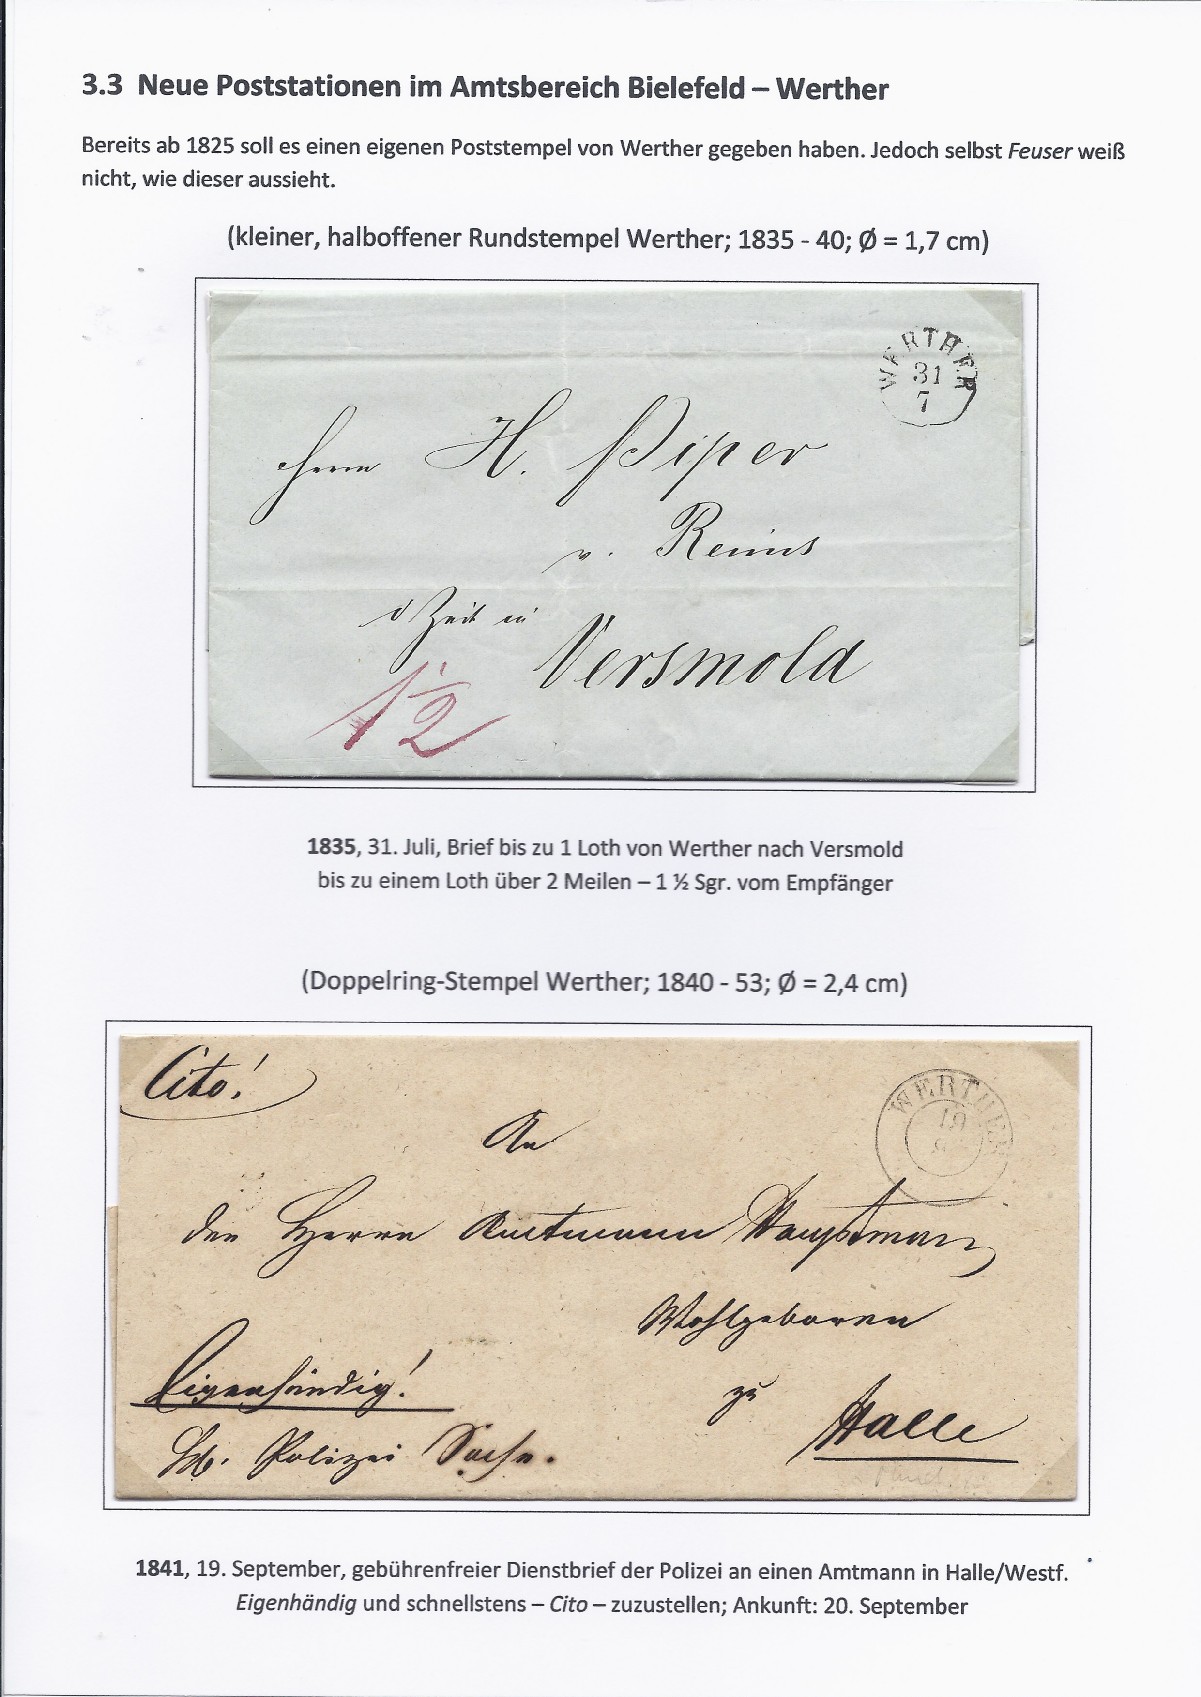 3.3 Neue Poststationen im Amtsbereich Bielefeld – Werther
Bereits ab 1825 soll es einen eigenen Poststempel von Werther gegeben haben. Jedoch selbst Feuser weiß
nicht, wie dieser aussieht.
(kleiner, halboffener Rundstempel Werther; 1835 - 40; Ø = 1,7 cm)
WERTHER
31
7
Herrn H. Piper
v. Reims
Zeit in
Versmold
1½
1835, 31. Juli, Brief bis zu 1 Loth von Werther nach Versmold
bis zu einem Loth über 2 Meilen – 1 ½ Sgr. vom Empfänger
(Doppelring-Stempel Werther; 1840 - 53; Ø = 2,4 cm)
Cito!
WERTHER
19
9
An
den Herrn Amtmann Hauptmann
Wohlgeboren
Eigenhändig!
zu
Halle
Polizei Sache.
1841, 19. September, gebührenfreier Dienstbrief der Polizei an einen Amtmann in Halle/Westf.
Eigenhändig und schnellstens – Cito – zuzustellen; Ankunft: 20. September